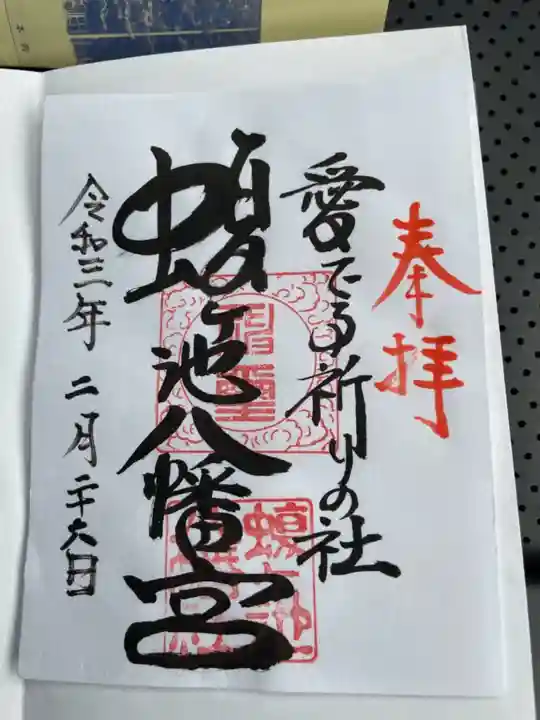 奉拝
愛でる祈りの社
蝮ヶ池八幡宮
令和三年 二月二十六日